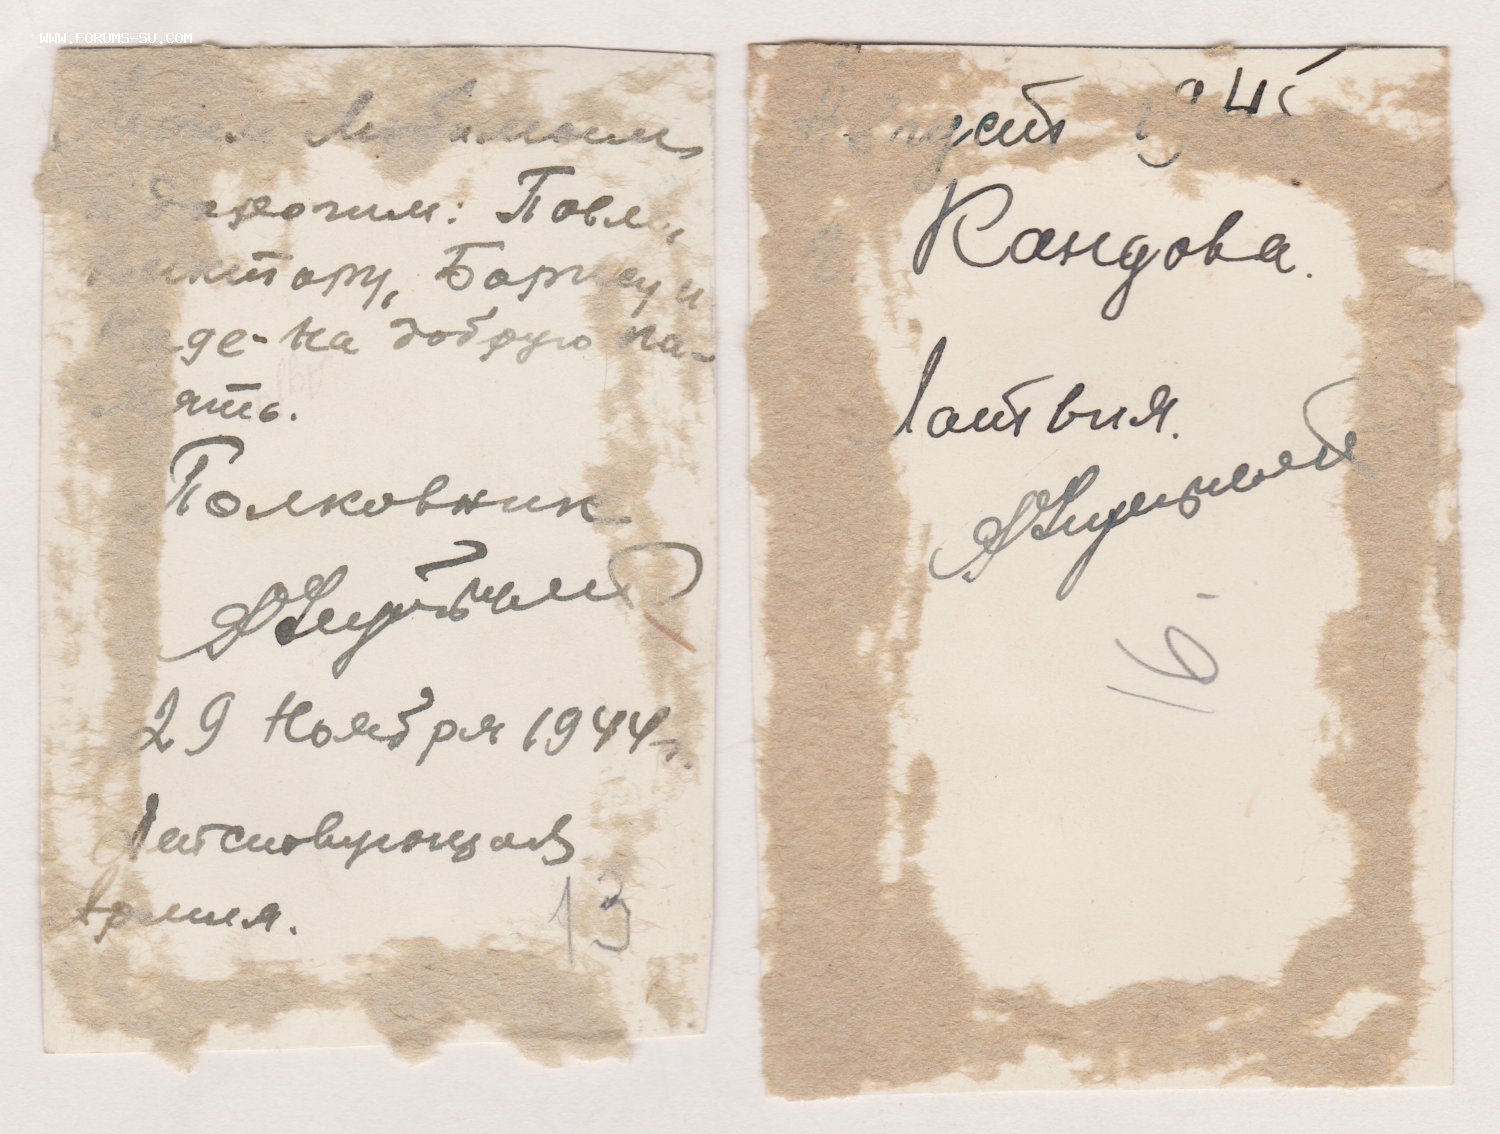 WWW.FORUMS-SU.COM
Моим любимым
дорогим: Павлу,
Виктору, Борису и
на добрую па-
мять.
Полковник
29 Ноября 1944 г.
Действующая
Армия.
13
Август 1945
Кандова.
Латвия.
16